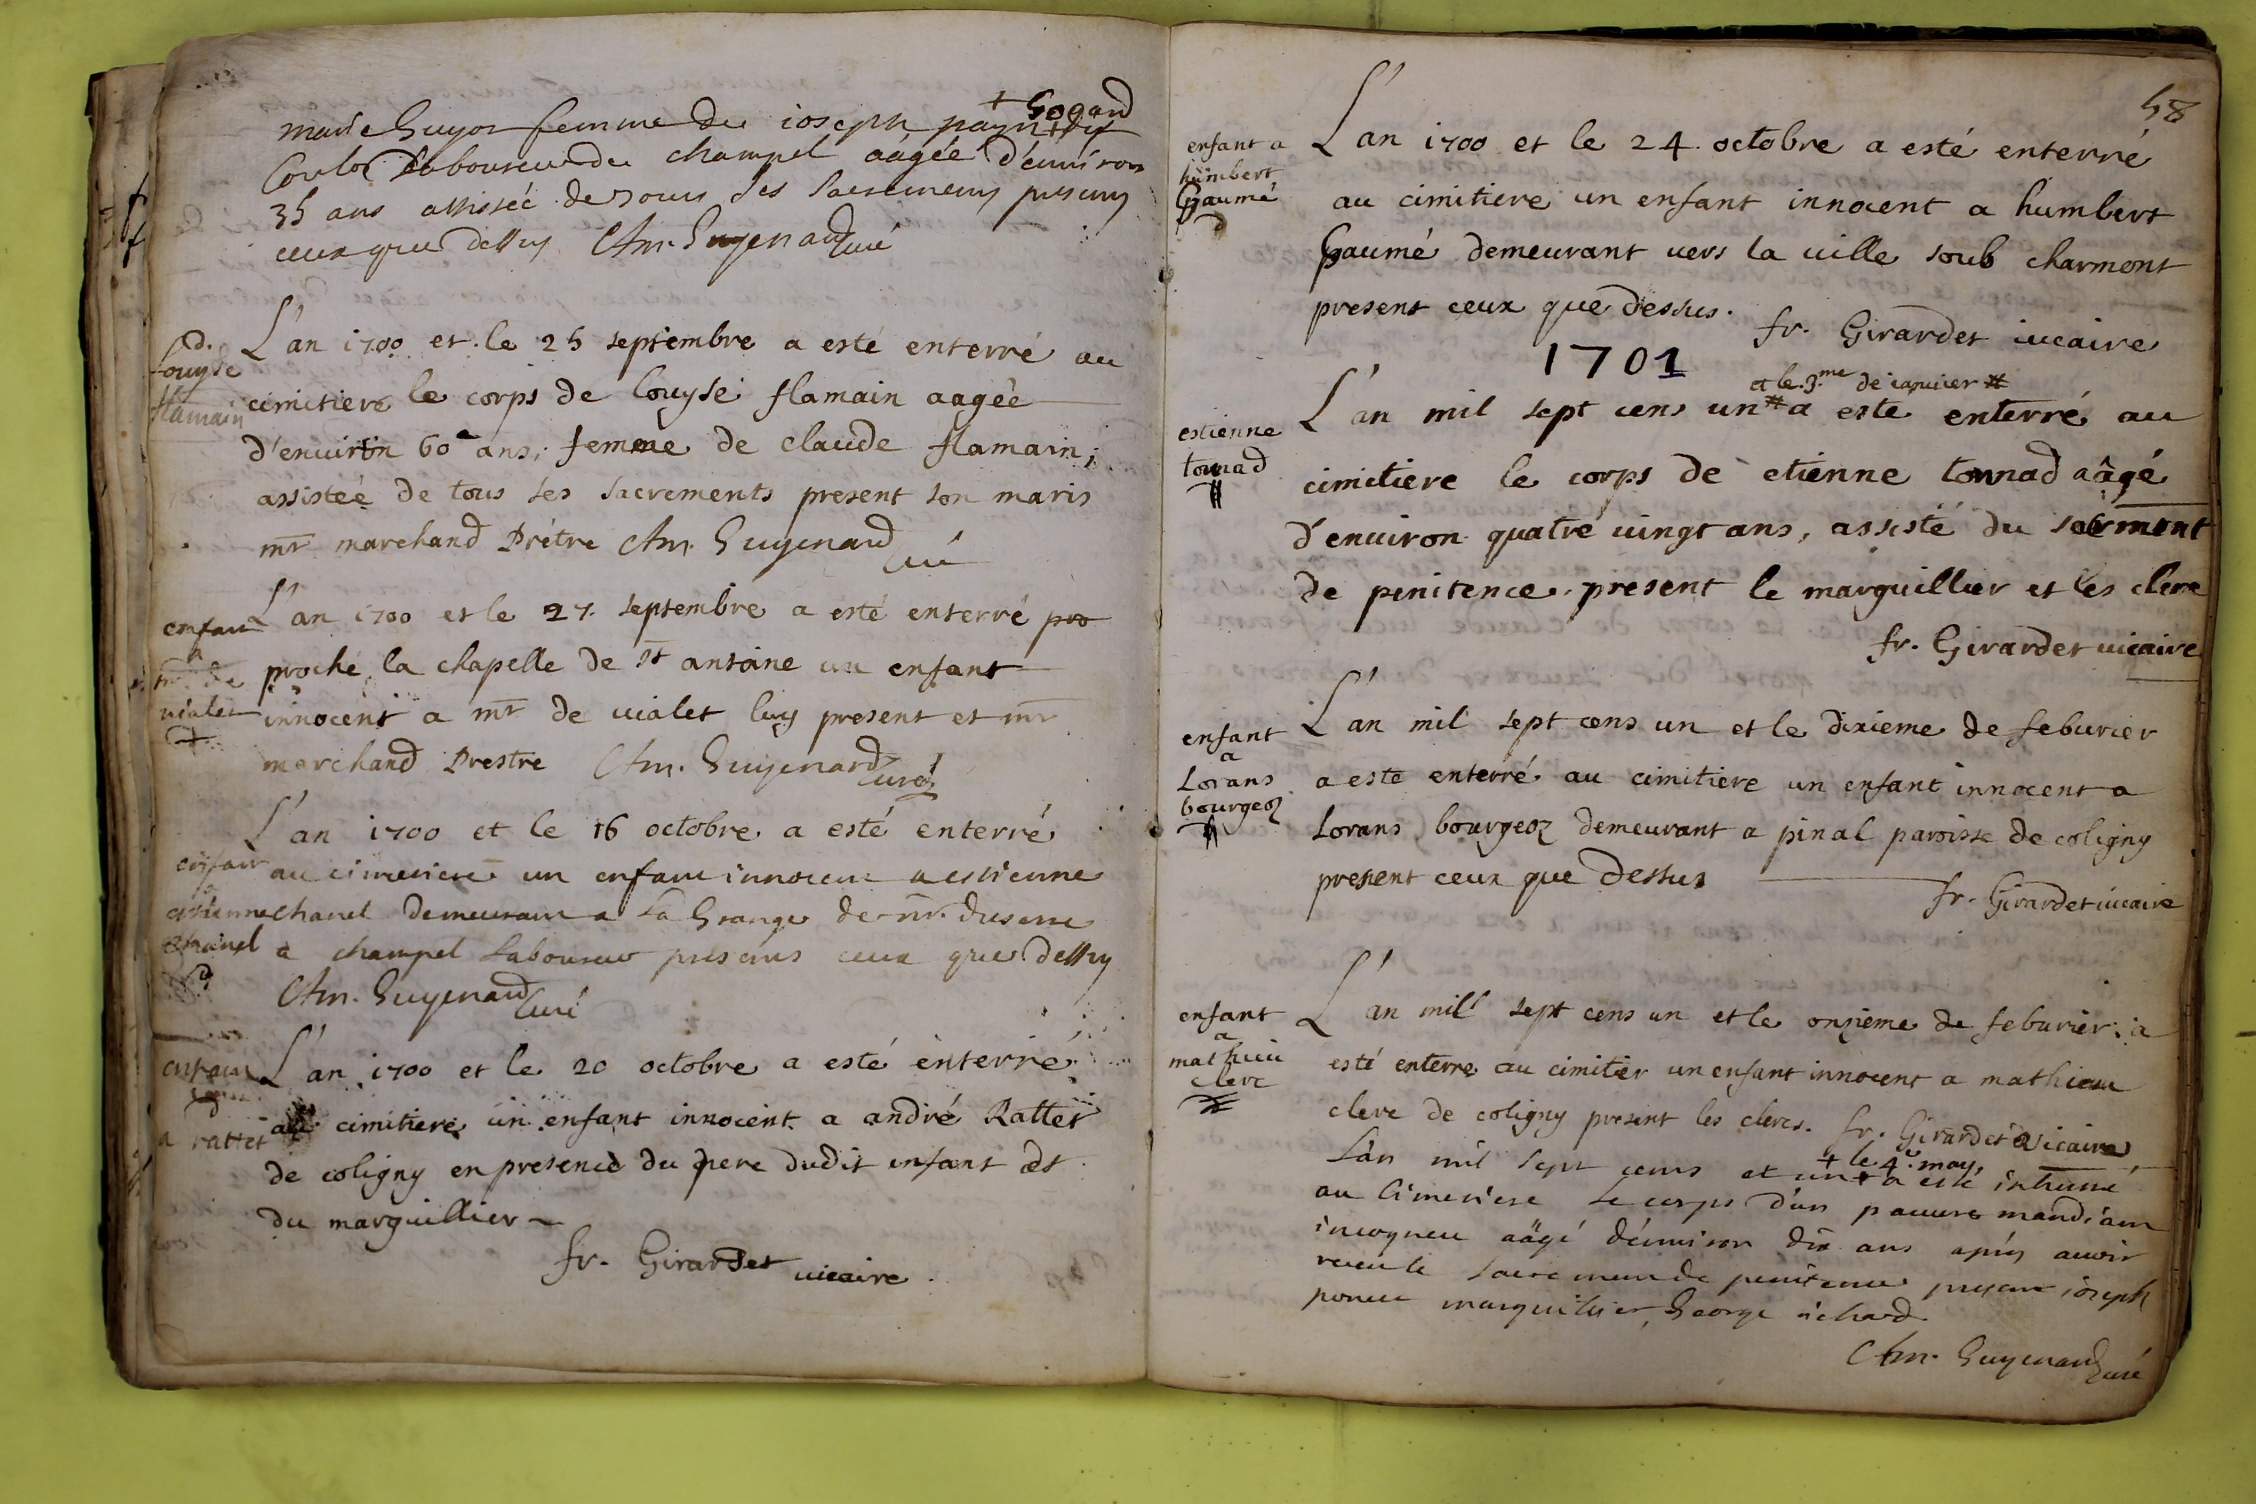 + Gogand
marie Guyot femme de ioseph
laboureur de champel aágéé d'environ
35 ans assistéé de tous ses sacremens presens
ceux que dessus Am. Guyenard curé
d.
louyse
flamain
L'an 1700 et le 25 septembre a esté enterré au
cimitiere le corps de louyse flamain aagéé
d'enuiron 60 ans, femme de claude flamain,
assistéé de tous ses sacrements present son maris
mr marchand Prétre Am. Guyenard curé
enfant
a
mr de
uialet
L'an 1700 et le 27. septembre a esté enterré pro
proche la chapelle de st antoine un enfant
innocent a mr de uialet luy present et mr
marchand Prestre Am. Guyenard curé
enfant
a
estienne
chanel
L'an 1700 et le 16 octobre a esté enterré
au cimetiere un enfant innocent a estienne
chanel demeurant a la Grange de mr.
a champel laboureur presens ceux que dessus
Am. Guyenard curé
enfant
a rattet
L'an 1700 et le 20 octobre a esté enterré
au cimitiere un enfant innocent a andré Rattet
de coligny en presence du pere dudit enfant et
du marguillier
fr. Girardet uicaire
58
enfant a
humbert
Gaumé
d
L'an 1700 et le 24 octobre a esté enterré
au cimitiere un enfant innocent a humbert
Gaumé demeurant uers la uille soub charmont
present ceux que dessus.
fr. Girardet uicaire
1701
et le 3.me de ianuier #
estienne
tonnad
L'an mil sept cens un # a este enterré au
cimitiere le corps de etienne tonnad aâgé
d'enuiron quatre uingt ans, assisté du
de penitence. present le marguillier et les clerc
fr. Girardet uicaire
enfant
a
Lorans
bourgeoz
L'an mil sept cens un et le dixieme de feburier
a este enterré au cimitiere un enfant innocent a
Lorans bourgeoz demeurant a pinal paroisse de coligny
present ceux que dessus
fr. Girardet uicaire
enfant
a
mathieu
clerc
L'an mill sept cens un et le onzieme de feburier a
esté enterre au cimitier un enfant innocent a mathieu
clerc de coligny present les clercs. fr. Girardet Vicaire
+ le 4e may
L'an mil sept cens et un + a esté inhumé
au Cimetiere le corps d'un pauure mandiant
incogneu aägé d'enuiron dix ans apres auoir
receu le sacrement de penitence present ioseph
poncet marguillier, George richard
Am. Guyenard curé